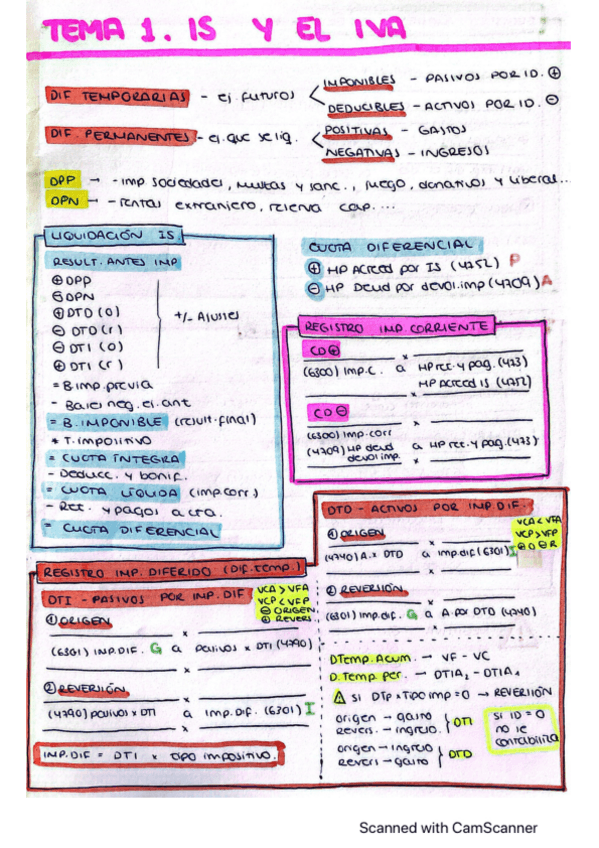 TEMA 1. IS Y EL IVA
DIF TEMPORARIAS - ej futuros
IMPONIBLES - PASIVOS POR ID. ⊕
DEDUCIBLES - ACTIVOS POR ID. ⊖
DIF. PERMANENTES - ej. que se liq.
POSITIVAS - GASTOS
NEGATIVAS - INGRESOS
DPP → - imp sociedades, multas y sanc., juego, donativos y liberal...
DPN → - rentas extranjero, reserva cap....
LIQUIDACIÓN IS.
RESULT. ANTES IMP
⊕ DPP
⊖ DPN
⊕ DTD (O)
⊖ DTD (r)
⊖ DTI (O)
⊕ DTI (r)
+/- Ajustes
= B.imp.previa
- Bases neg. ej. ant
= B. IMPONIBLE (result. final)
* T. impositivo
= CUOTA ÍNTEGRA
- Deducc. y bonif.
= CUOTA LÍQUIDA (imp.corr.)
- Ret. y pagos a cta.
= CUOTA DIFERENCIAL
CUOTA DIFERENCIAL
⊕ HP Acreed por IS (4752) P
⊖ HP Deud por devol.imp (4709) A
REGISTRO IMP CORRIENTE
CD ⊕
x
(6300) Imp.C. a HP ret. y pag. (473)
HP Acreed IS (4752)
x
CD ⊖
x
(6300) Imp.corr
(4709) HP deud devol imp. a HP ret. y pag. (473)
x
REGISTRO IMP. DIFERIDO (Dif. temp.)
DTI - PASIVOS POR IMP. DIF
VCA > VFA
VCP < VFP
⊖ ORIGEN
⊕ REVERS.
① ORIGEN
x
(6301) IMP. DIF. G a pasivos x DTI (4790)
x
② REVERSIÓN
x
(4790) pasivos x DTI a Imp. Dif. (6301) I
x
IMP. DIF = DTI x tipo impositivo.
DTD - ACTIVOS POR IMP. DIF.
VCA < VFA
VCP > VFP
⊕ O ⊖ R
① ORIGEN
x
(4740) A. x DTD a imp.dif (6301) I
x
② REVERSIÓN
x
(6301) imp.dif. G a A. por DTD (4740)
x
DTemp. Acum. → VF - VC
D. Temp. per. → DTIA₂ - DTIA₁
⚠ Si DTP x Tipo imp = 0 → REVERSIÓN
origen → gasto
revers. → ingreso.
} DTI
origen → ingreso
revers → gasto
} DTD
SI ID = 0
no se
contabiliza
Scanned with CamScanner